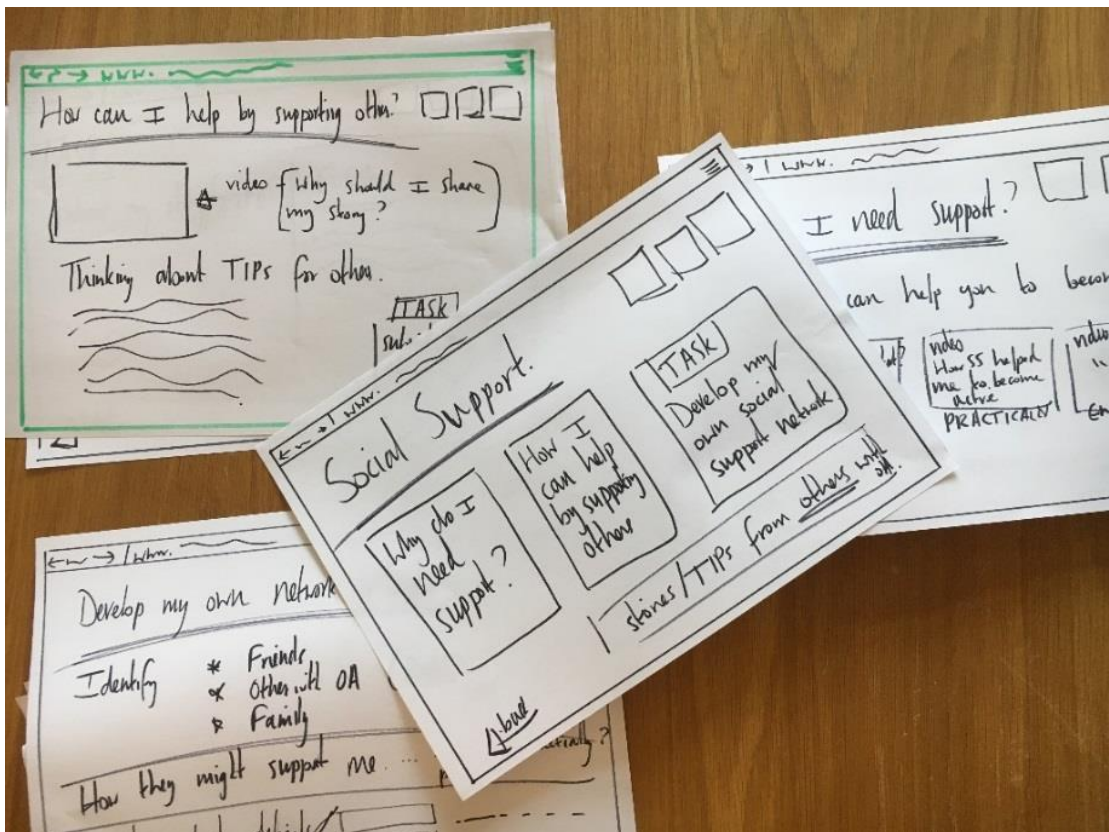 www.
How can I help by supporting other?
video (why should I share
my story?)
Thinking about TIPs for others.
TASK
www.
Social Support.
Why do I
need
support?
How I
can help
by supporting
others
TASK
Develop my
own social
support network
stories/TIPs from others with
OA.
www.
I need support?
can help you to
video
How SS helped
me to become
active
PRACTICALLY
video
www.
Develop my own network
Identify * Friends
* Other with OA
* Family
How they might support me ....